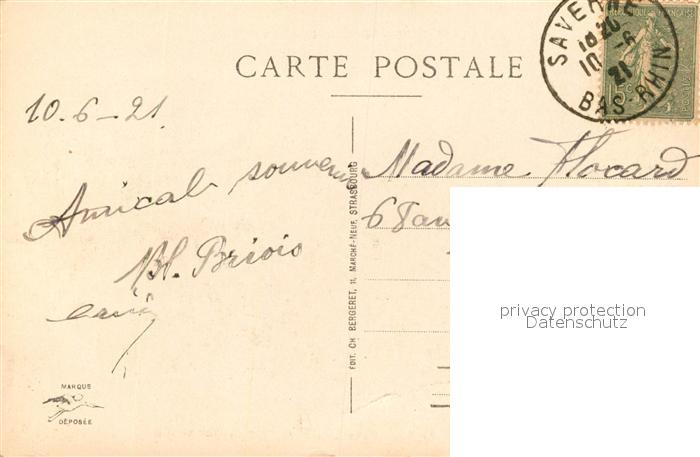 CARTE POSTALE
SAVERNE
18 20
10 - 6
21
BAS-RHIN
10.6-21
Amical souvenir
Bl. Briois
Madame Flocard
6
EDIT. CH. BERGERET, 11, MARCHÉ-NEUF, STRASBOURG
MARQUE
DÉPOSÉE
privacy protection
Datenschutz